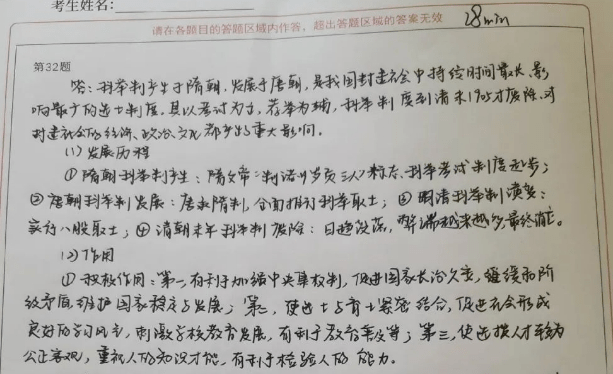 考生姓名:
请在各题目的答题区域内作答，超出答题区域的答案无效
28min
第32题
答：科举制产生于隋朝，发展于唐朝，是我国封建社会中持续时间最长、影
响最广的选士制度，其以考试为主，荐举为辅，科举制度到清末1905才废除，对
封建社会的经济、政治、文化都产生重大影响。
(1)发展历程
①隋朝科举制产生：隋文帝"制诸州岁贡三人"标志，科举考试制度起步；
②唐朝科举制发展：唐承隋制，全面推行科举取士；③明清科举制演变：
实行八股取士；④清朝末年科举制废除：日趋没落，弊端越来越多，最终消亡。
(2)作用
①积极作用：第一，有利于加强中央集权制，促进国家长治久安，缓和阶
级矛盾，维护国家稳定与发展；第二，使选士与育士紧密结合，促进社会形成
良好的学习风气，刺激学校教育发展，有利于教育普及等；第三，使选拔人才较为
公正客观，重视人的知识才能，有利于检验人的能力。